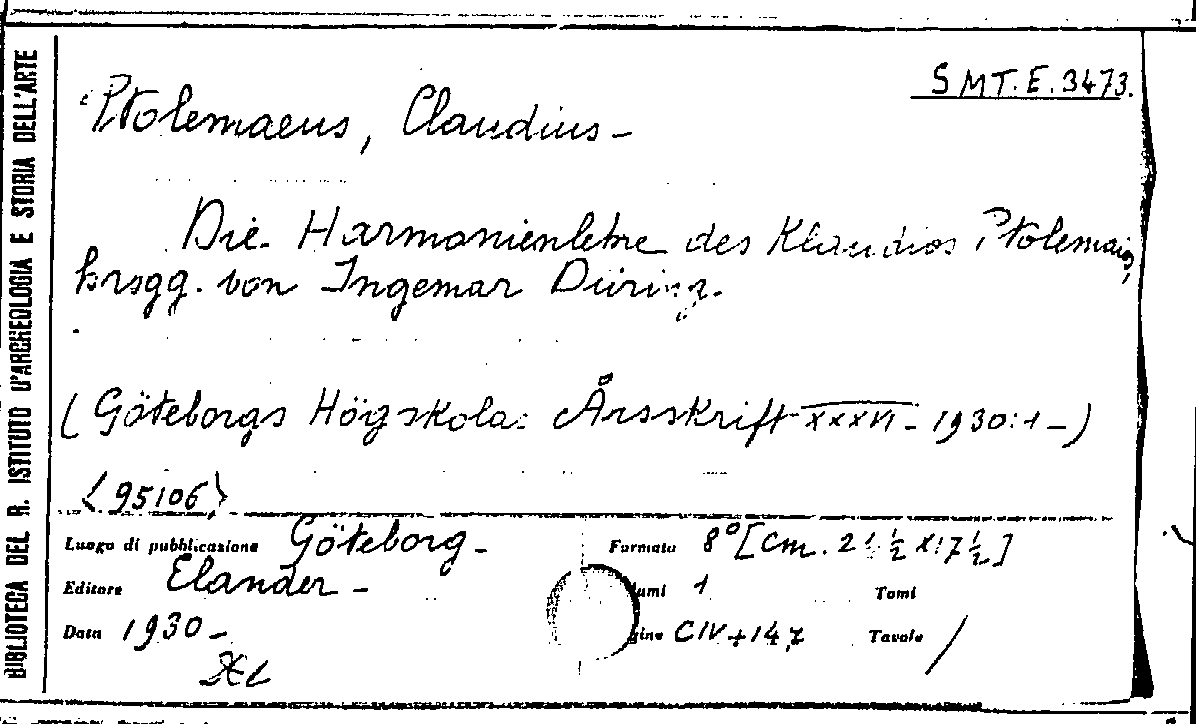 BIBLIOTECA DEL R. ISTITUTO D'ARCHEOLOGIA E STORIA DELL'ARTE
SMT.E.3473.
Ptolemaeus, Claudius-
Die Harmonienlehre des Klaudios Ptolemaios,
hrsgg. von Ingemar Düring.
(Göteborgs Högskola: Årsskrift XXXVI - 1930:1-)
<95106>
Luogo di pubblicazione Göteborg- Formato 8º [cm. 21½ x 17½]
Editore Elander- lumi 1 Tomi
Data 1930- gine CIV+147 Tavole /